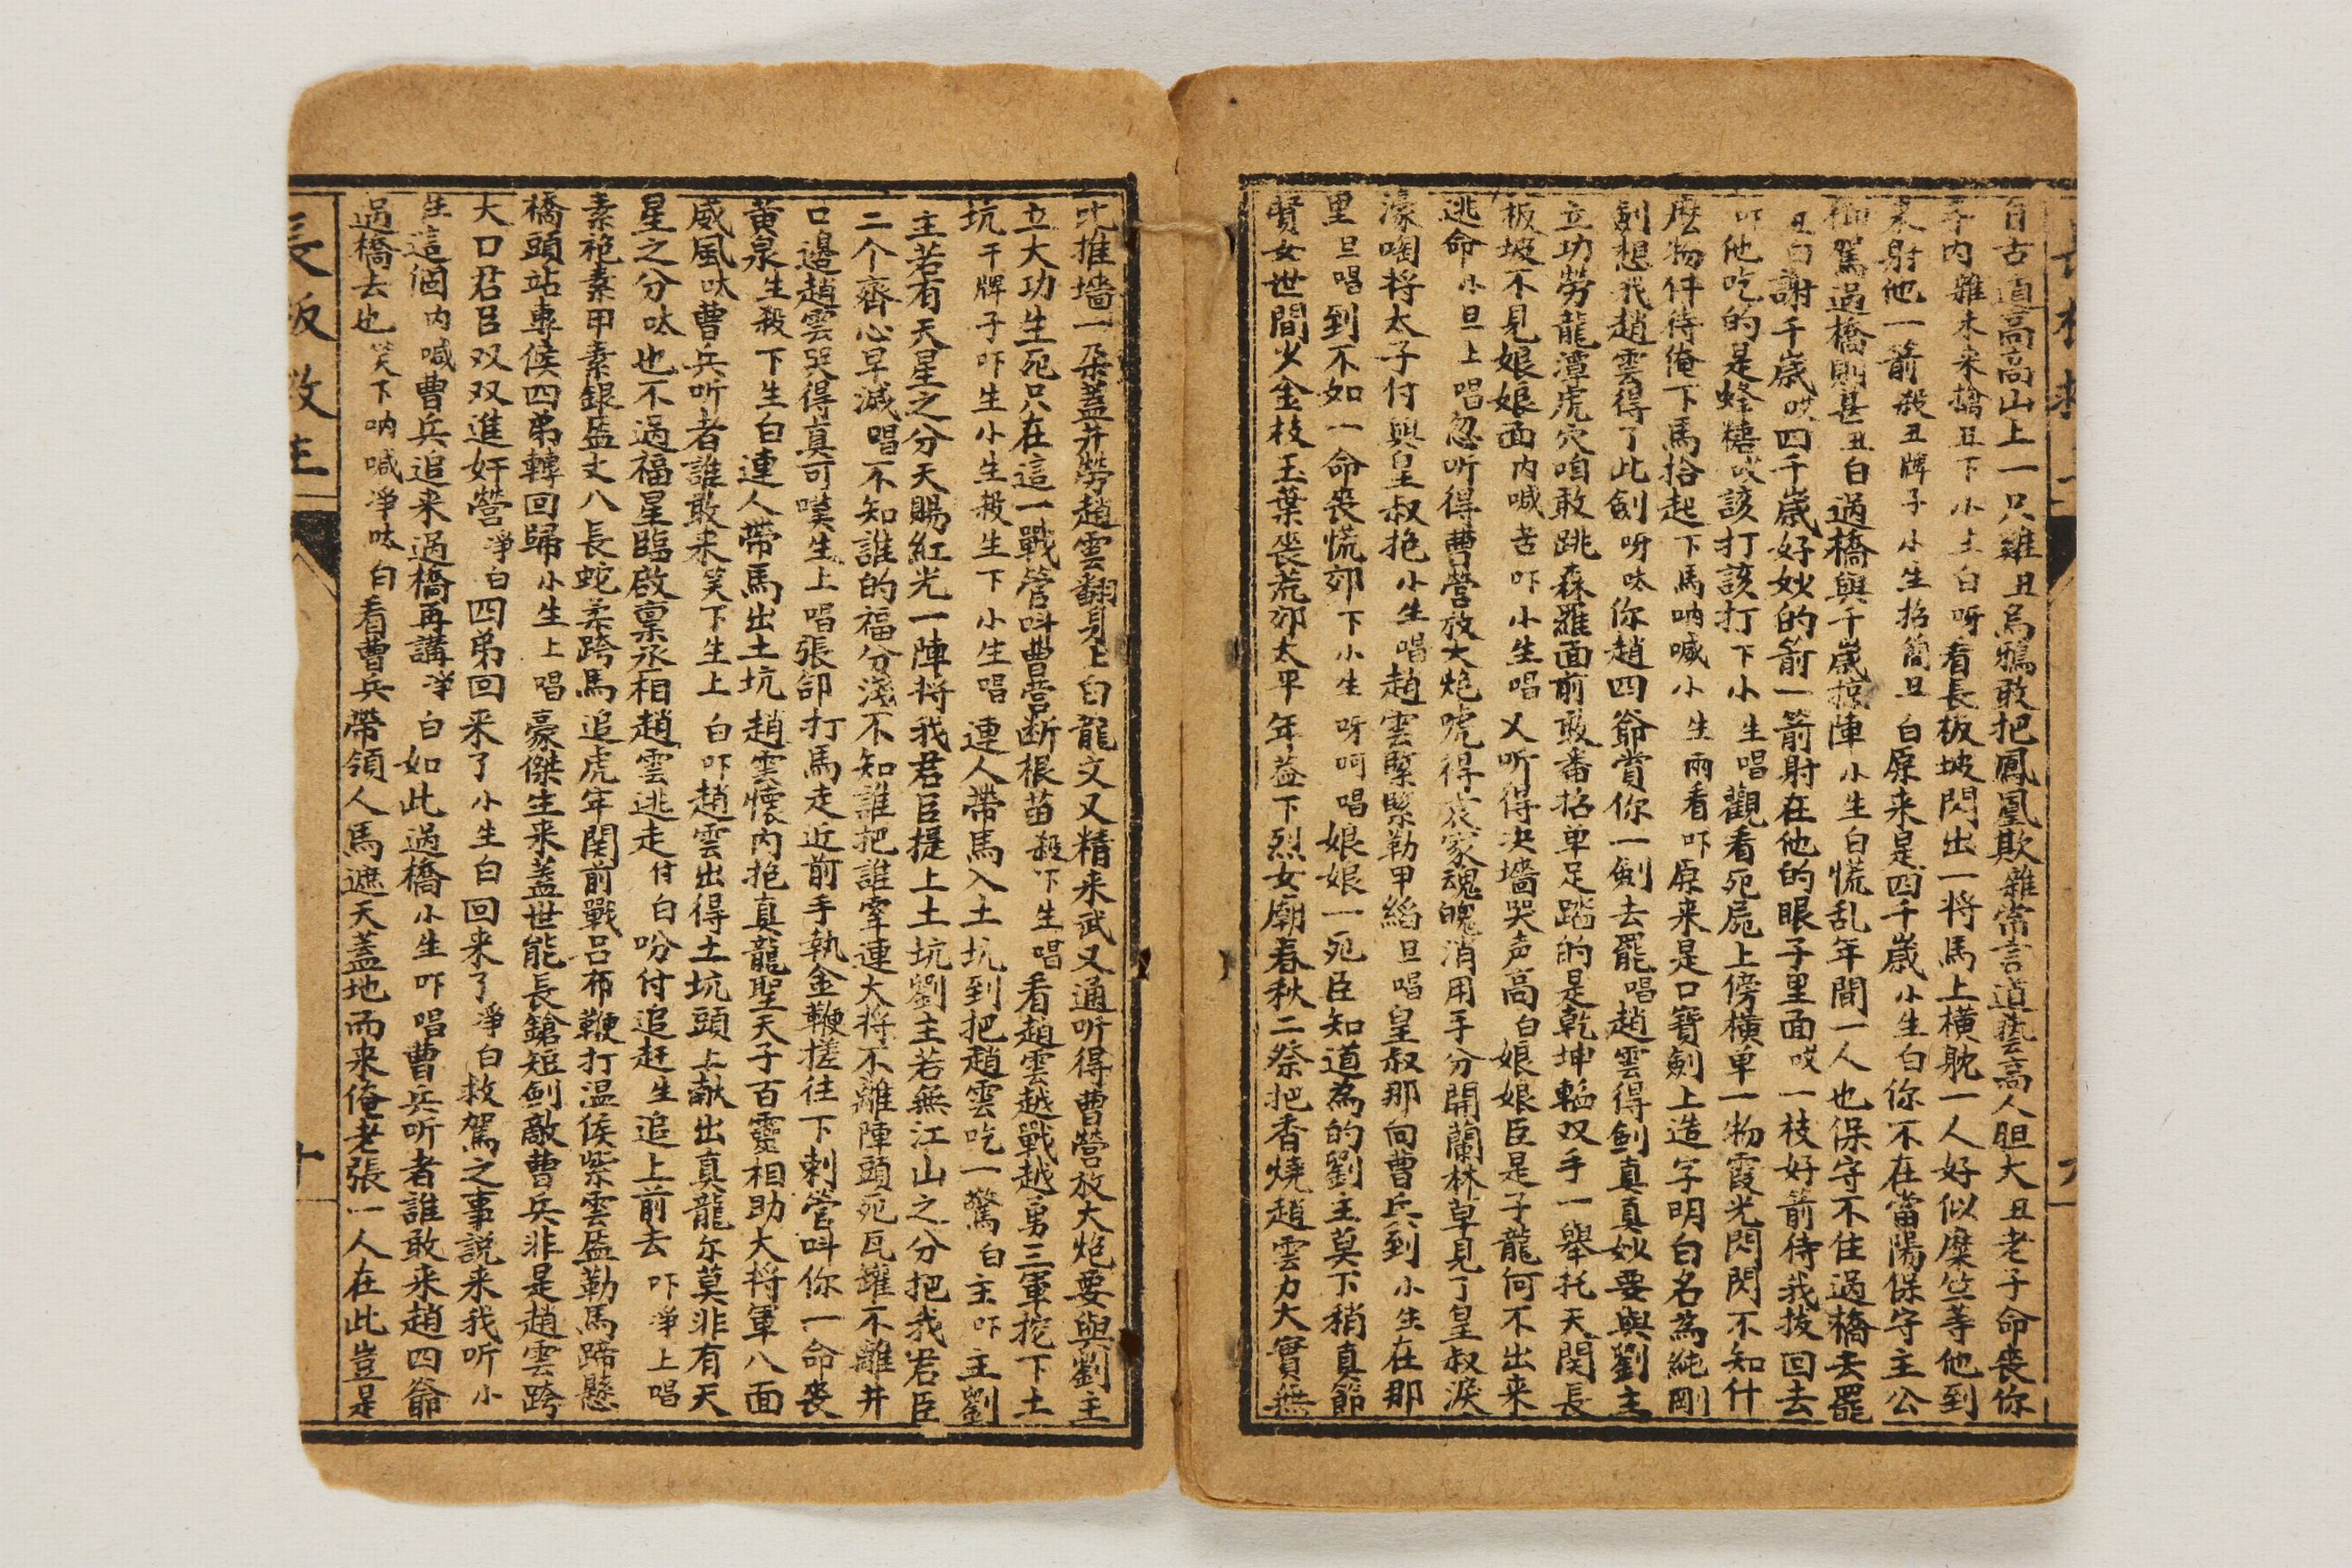 自古道高高山上一只雞丑烏鴉敢把鳳凰欺雜常言道藝高人胆大丑老子命丧你
手内雜末宋搶丑下小土白呀看長板坡閃出一将馬上横躭一人好似糜竺等他到
来射他一箭殺丑牌子小生招簡丑白原来是四千歲小生白你不在當陽保守主公
御駕過橋則甚丑白過橋與千歲掠陣小生白慌乱年間一人也保守不住過橋去罷
丑白謝千歲哎四千歲好妙的箭一箭射在他的眼子里面哎一枝好箭待我拔回去
吓他吃的是蜂糖哎該打該打下小生唱觀看死屍上傍横单一物霞光閃閃不知什
庅物件待俺下馬拾起下馬呐喊小生兩看吓原来是口寶劍上造字明白名為純剛
劍想我趙雲得了此劍呀呔你趙四爺賞你一劍去罷唱趙雲得劍真真妙要與劉主
立功勞龍潭虎穴咱敢跳森羅面前敢番招单足踏的是乾坤輡双手一舉托天関長
板坡不見娘娘面内喊苦吓小生唱又听得决墙哭声高白娘娘臣是子龍何不出来
逃命小旦上唱忽听得曹营放大炮唬得衣家魂魄消用手分開蘭林草見了皇叔淚
濠啕将太子付與皇叔抱小生唱趙雲緊緊勒甲縧旦唱皇叔那向曹兵到小生在那
里旦唱到不如一命丧慌郊下小生呀呵唱娘娘一死臣知道為的劉主莫下稍真節
賢女世間少金枝玉葉丧荒郊太平年盖下烈女廟春秋二祭把香燒趙雲力大實無
比推墻一朶蓋井勞趙雲翻身上白龍文又精来武又通听得曹营放大炮要與劉主
立大功生死只在這一戰管叫曹营断根苗殺吓生唱看趙雲越戰越勇三軍挖下土
坑干牌子吓生小生殺生下小生唱連人帶馬入土坑到把趙雲吃一驚白主吓主劉
主若有天星之分天賜紅光一陣将我君臣提上土坑劉主若無江山之分把我君臣
二个齊心早滅唱不知誰的福分淺不知誰把誰牽連大将不離陣頭死瓦罐不離井
口邊趙雲哭得真可嘆生上唱張郃打馬走近前手執金鞭搓往下刺管叫你一命丧
黄泉生殺下生白連人帶馬出土坑趙雲懷内抱真龍聖天子百靈相助大将軍八面
威風呔曹兵听者誰敢来笑下生上白吓趙雲出得土坑頭上献出真龍尔莫非有天
星之分呔也不過福星臨啟禀丞相趙雲逃走付白吩付追赶生追上前去吓淨上唱
素袍素甲素銀盔丈八長蛇矛跨馬追虎牢関前戰吕布鞭打温侯紫雲盔勒馬蹄懸
橋頭站專候四弟轉回歸小生上唱豪傑生来蓋世能長鎗短劍敵曹兵非是趙雲跨
大口君臣双双進奸營淨白四弟回来了小生白回来了淨白救駕之事説来我听小
生這個内喊曹兵追来過橋再講淨白如此過橋小生吓唱曹兵听者誰敢来趙四爺
過橋去也笑下呐喊淨呔白看曹兵帶領人馬遮天蓋地而来俺老張一人在此豈是
長板救主
十